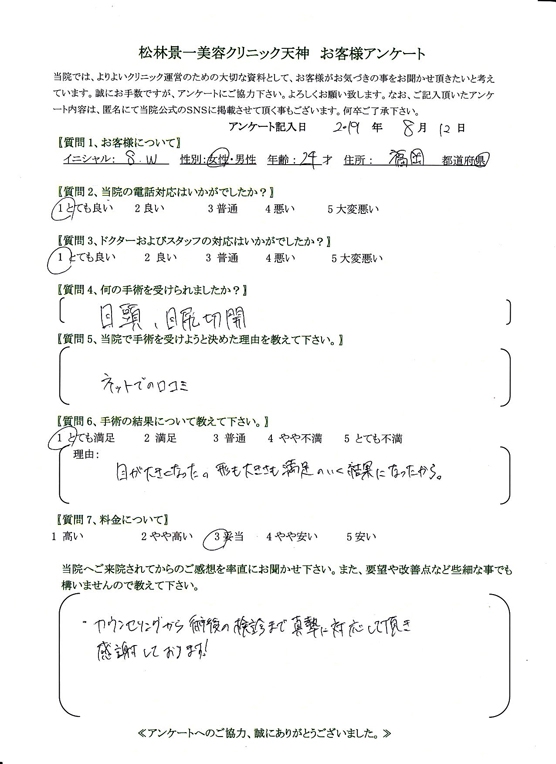 松林景一美容クリニック天神　お客様アンケート
当院では、よりよいクリニック運営のための大切な資料として、お客様がお気づきの事をお聞かせ頂きたいと考え
ています。誠にお手数ですが、アンケートにご協力下さい。よろしくお願い致します。なお、ご記入頂いたアンケ
ート内容は、匿名にて当院公式のSNSに掲載させて頂く事もございます。何卒ご了承下さい。
アンケート記入日　2019　年　8　月　12　日
【質問1、お客様について】
イニシャル：　S.W　性別：女性・男性　年齢：24才　住所：　福岡　都道府県
【質問2、当院の電話対応はいかがでしたか？】
1 とても良い　2 良い　3 普通　4 悪い　5 大変悪い
【質問3、ドクターおよびスタッフの対応はいかがでしたか？】
1 とても良い　2 良い　3 普通　4 悪い　5 大変悪い
【質問4、何の手術を受けられましたか？】
目頭、目尻切開
【質問5、当院で手術を受けようと決めた理由を教えて下さい。】
ネットでの口コミ
【質問6、手術の結果について教えて下さい。】
1 とても満足　2 満足　3 普通　4 やや不満　5 とても不満
理由：
目が大きくなった。形も大きさも満足のいく結果になったから。
【質問7、料金について】
1 高い　2 やや高い　3 妥当　4 やや安い　5 安い
当院へご来院されてからのご感想を率直にお聞かせ下さい。また、要望や改善点など些細な事でも
構いませんので教えて下さい。
・カウンセリングから術後の検診まで真摯に対応して頂き
感謝しております!
≪アンケートへのご協力、誠にありがとうございました。≫